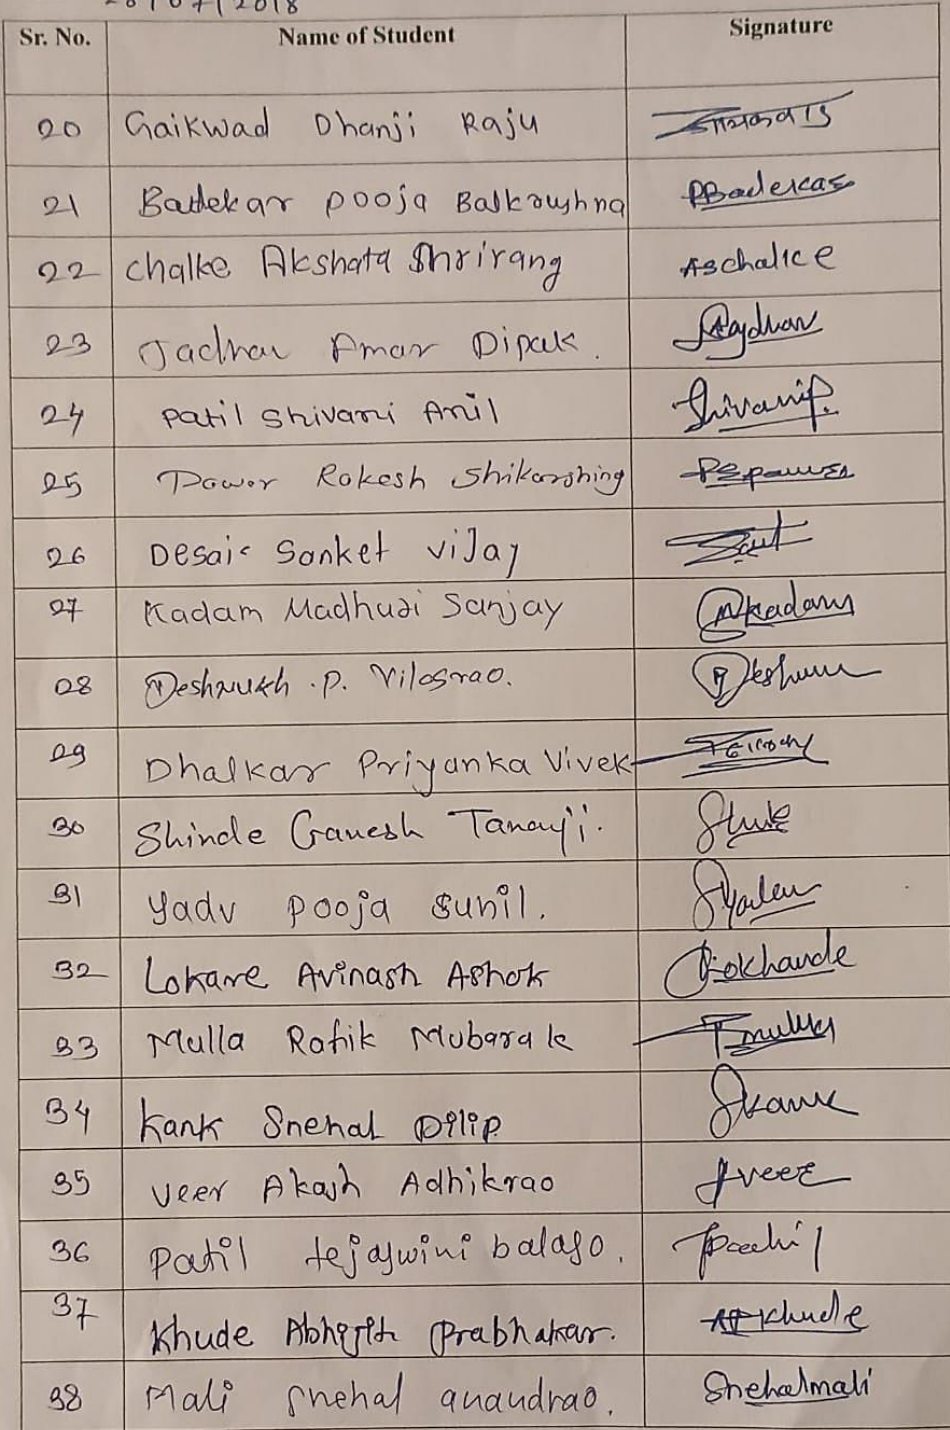 Sr. No. Name of Student Signature
20 Gaikwad Dhanji Raju गायकवाड
21 Badekar pooja Balkrushna PBadekar
22 Chalke Akshata Shrirang Aschalke
23 Jadhav Amar Dipak.
24 Patil Shivani Anil Shivanip.
25 Pawar Rakesh Shikarshing
26 Desai Sanket Vijay
27 Kadam Madhuri Sanjay Mkadam
28 Deshmukh .P. Vilasrao.
29 Dhalkar Priyanka Vivek
30 Shinde Ganesh Tanaji.
31 Yadv pooja sunil.
32 Lokare Avinash Ashok Lokhande
33 Mulla Rafik Mubarak
34 Kank Snehal Dilip Skank
35 Veer Akash Adhikrao Aveer
36 Patil tejaswini balaso.
37 Khude Abhijith Prabhakar. APKhude
38 Mali snehal anandrao. Snehalmali